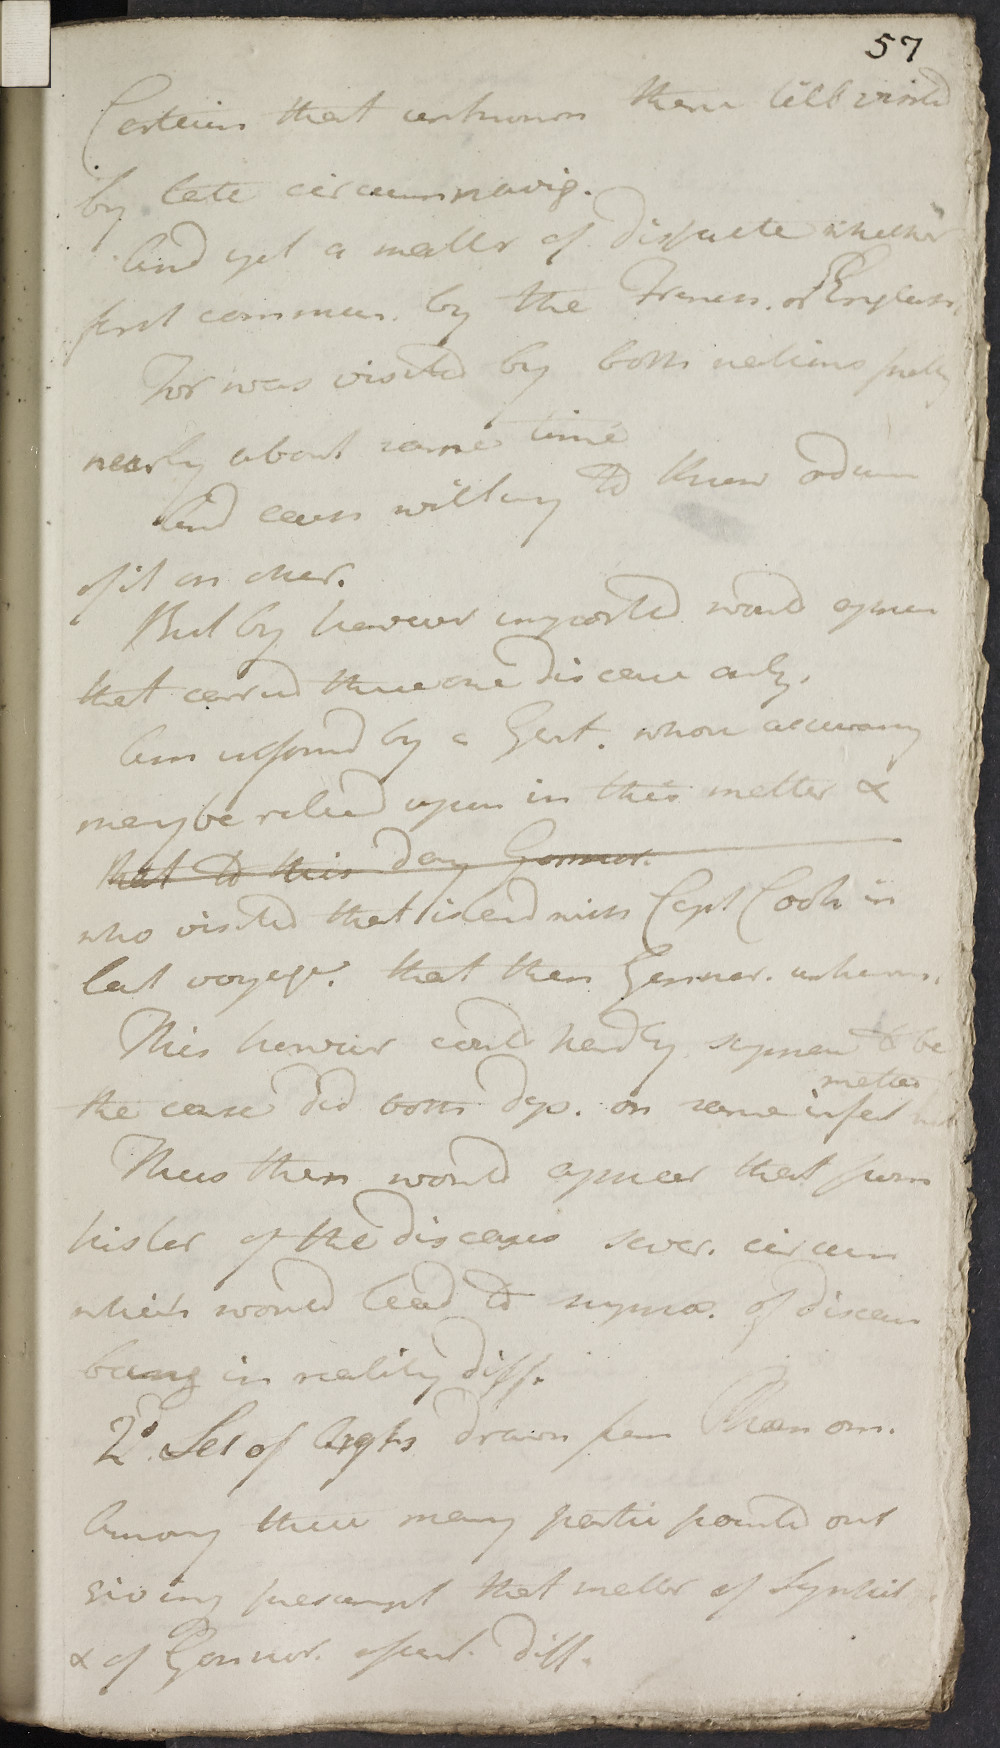 57
Certain that unknown there till visited
by late circumnavig.
And yet a matter of dispute whether
first commun. by the French. or English.
For was visited by both nations pretty
nearly about same time
And each willing to throw odium
of it on other.
But by however imported would appear
that carried there one disease only.
Am informd by a Gent. whose accuracy
may be relied upon in this matter &
that to this day Gonnor.
who visited that island with Capt Cook in
last voyage. that then Gonnor. unknown.
This however could hardly suppose to be
matter
the case did both dep. on same infect
Thus then would appear that from
histor of the diseases sever. circum
which would lead to suppos. of diseases
being in reality diff.
2d. Set of Args drawn from Phaenom.
Among these many partic pointed out
giving presumpt that matter of Syphil.
& of Gonnor. essent. diff.